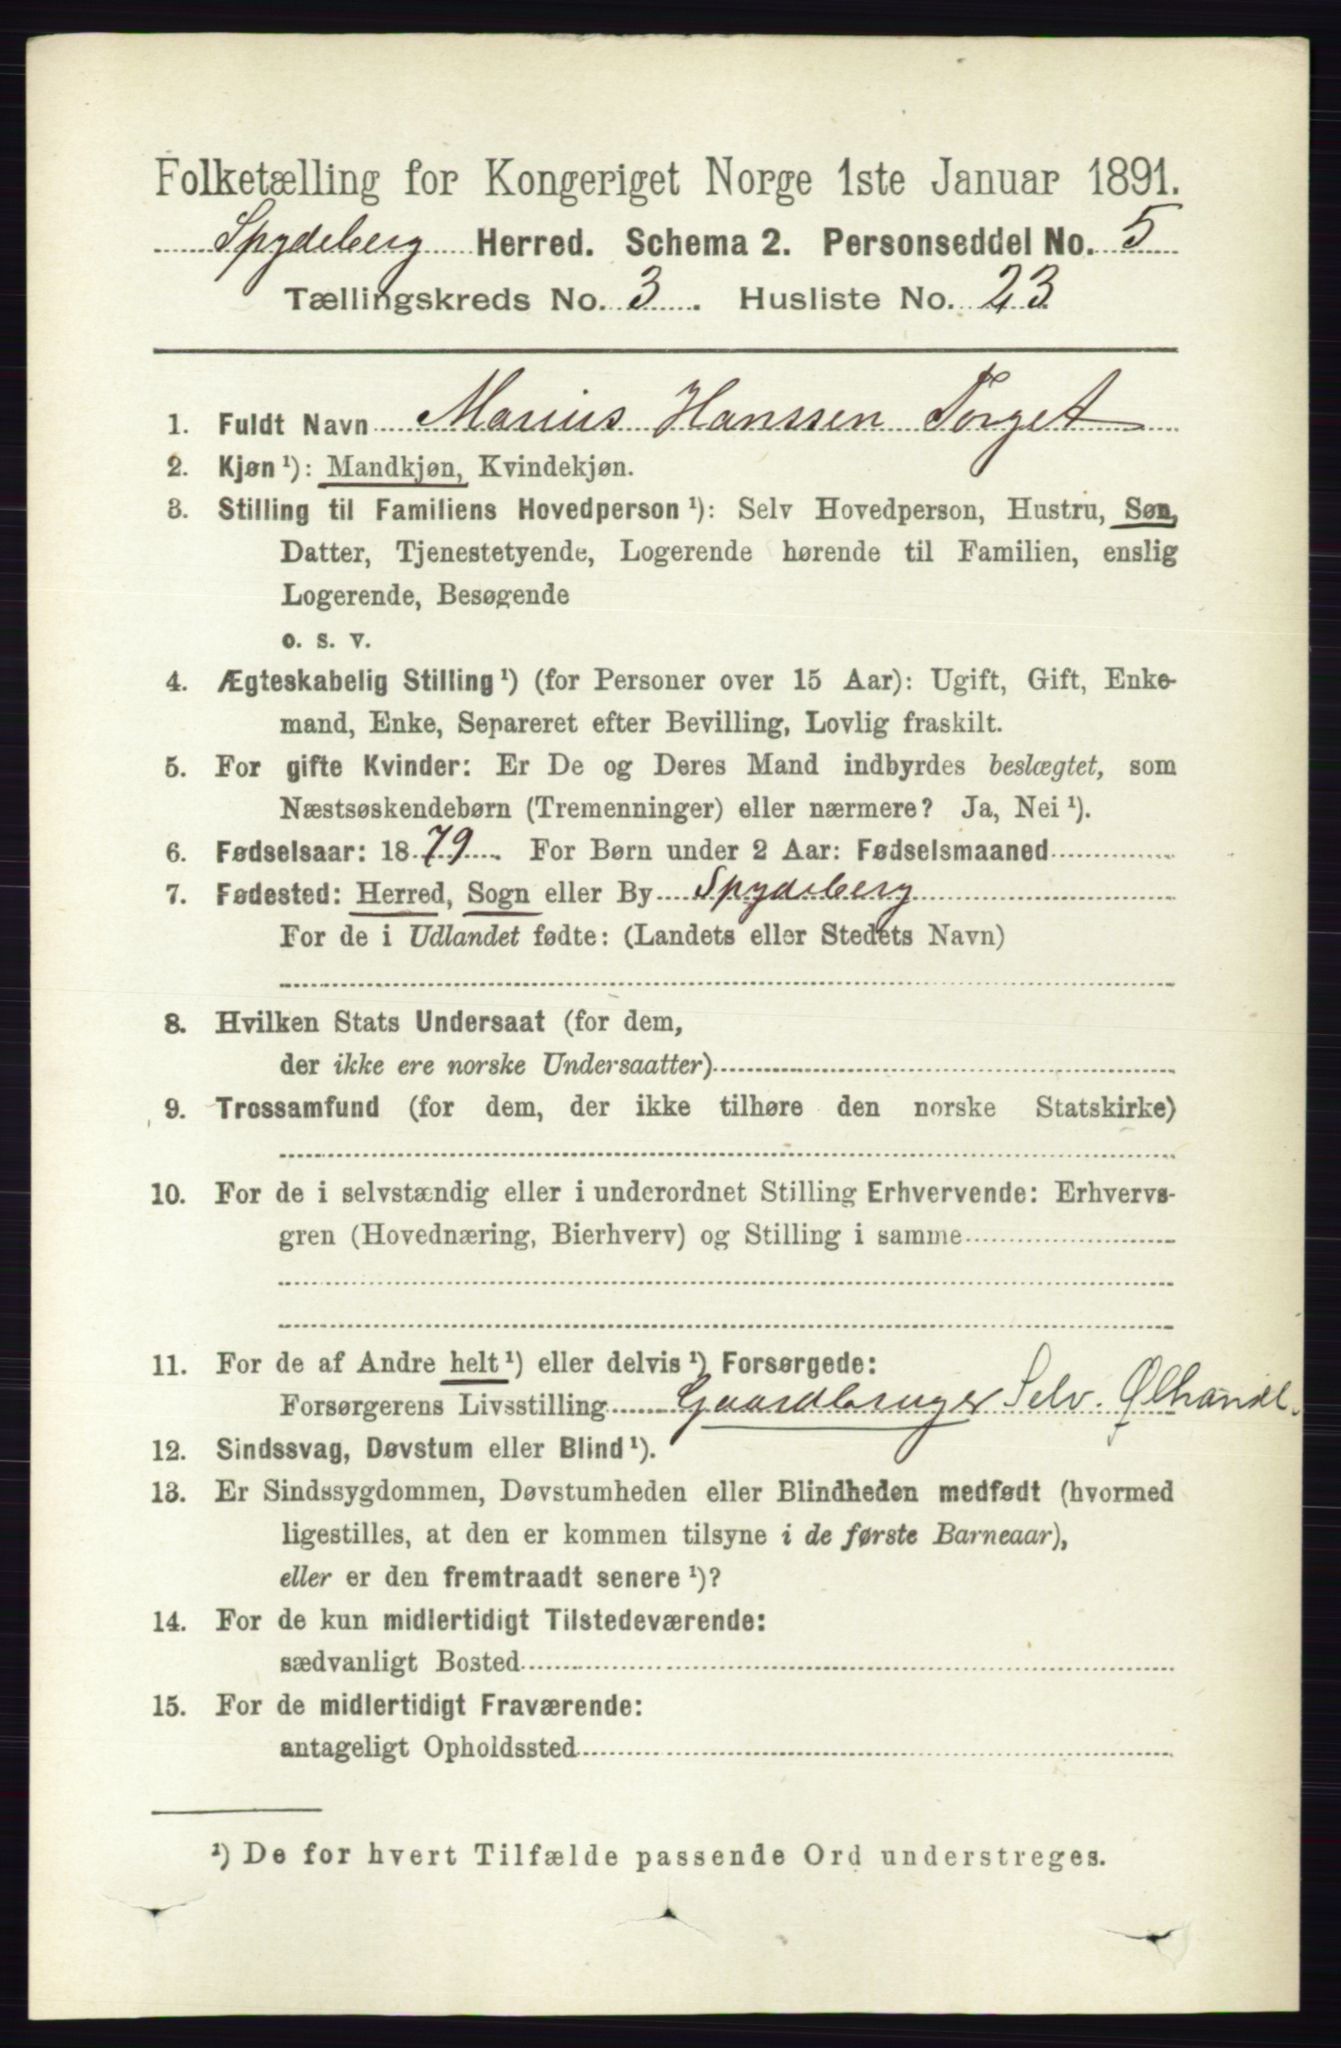 Folketælling for Kongeriget Norge 1ste Januar 1891.
Spydeberg Herred. Schema 2. Personseddel No. 5
Tællingskreds No. 3. Husliste No. 23
1. Fuldt Navn Marius Hanssen Torget
2. Kjøn ¹): Mandkjøn, Kvindekjøn.
3. Stilling til Familiens Hovedperson ¹): Selv Hovedperson, Hustru, Søn,
Datter, Tjenestetyende, Logerende hørende til Familien, enslig
Logerende, Besøgende
o. s. v.
4. Ægteskabelig Stilling ¹) (for Personer over 15 Aar): Ugift, Gift, Enke-
mand, Enke, Separeret efter Bevilling, Lovlig fraskilt.
5. For gifte Kvinder: Er De og Deres Mand indbyrdes beslægtet, som
Næstsøskendebørn (Tremenninger) eller nærmere? Ja, Nei ¹).
6. Fødselsaar: 1879. For Børn under 2 Aar: Fødselsmaaned
7. Fødested: Herred, Sogn eller By Spydeberg
For de i Udlandet fødte: (Landets eller Stedets Navn)
8. Hvilken Stats Undersaat (for dem,
der ikke ere norske Undersaatter)
9. Trossamfund (for dem, der ikke tilhøre den norske Statskirke)
10. For de i selvstændig eller i underordnet Stilling Erhvervende: Erhvervs-
gren (Hovednæring, Bierhverv) og Stilling i samme
11. For de af Andre helt ¹) eller delvis ¹) Forsørgede:
Forsørgerens Livsstilling Gaardbruger Selv. Ølhandl.
12. Sindssvag, Døvstum eller Blind ¹).
13. Er Sindssygdommen, Døvstumheden eller Blindheden medfødt (hvormed
ligestilles, at den er kommen tilsyne i de første Barneaar),
eller er den fremtraadt senere ¹)?
14. For de kun midlertidigt Tilstedeværende:
sædvanligt Bosted
15. For de midlertidigt Fraværende:
antageligt Opholdssted
¹) De for hvert Tilfælde passende Ord understreges.